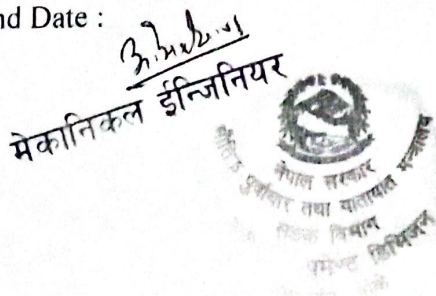 nd Date :
मेकानिकल ईन्जिनियर
नेपाल सरकार
पूर्वाधार तथा यातायात मन्त्रालय
सडक विभाग
डिभिजन